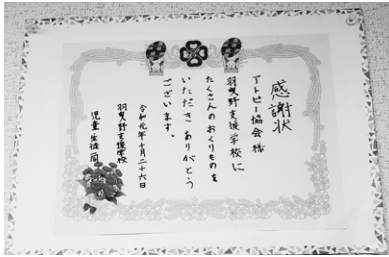 感謝状
アトピー協会様
羽曳野支援学校に
たくさんのおくりものを
いただきありがとう
ございます。
令和元年十月二十六日
羽曳野支援学校
児童生徒一同